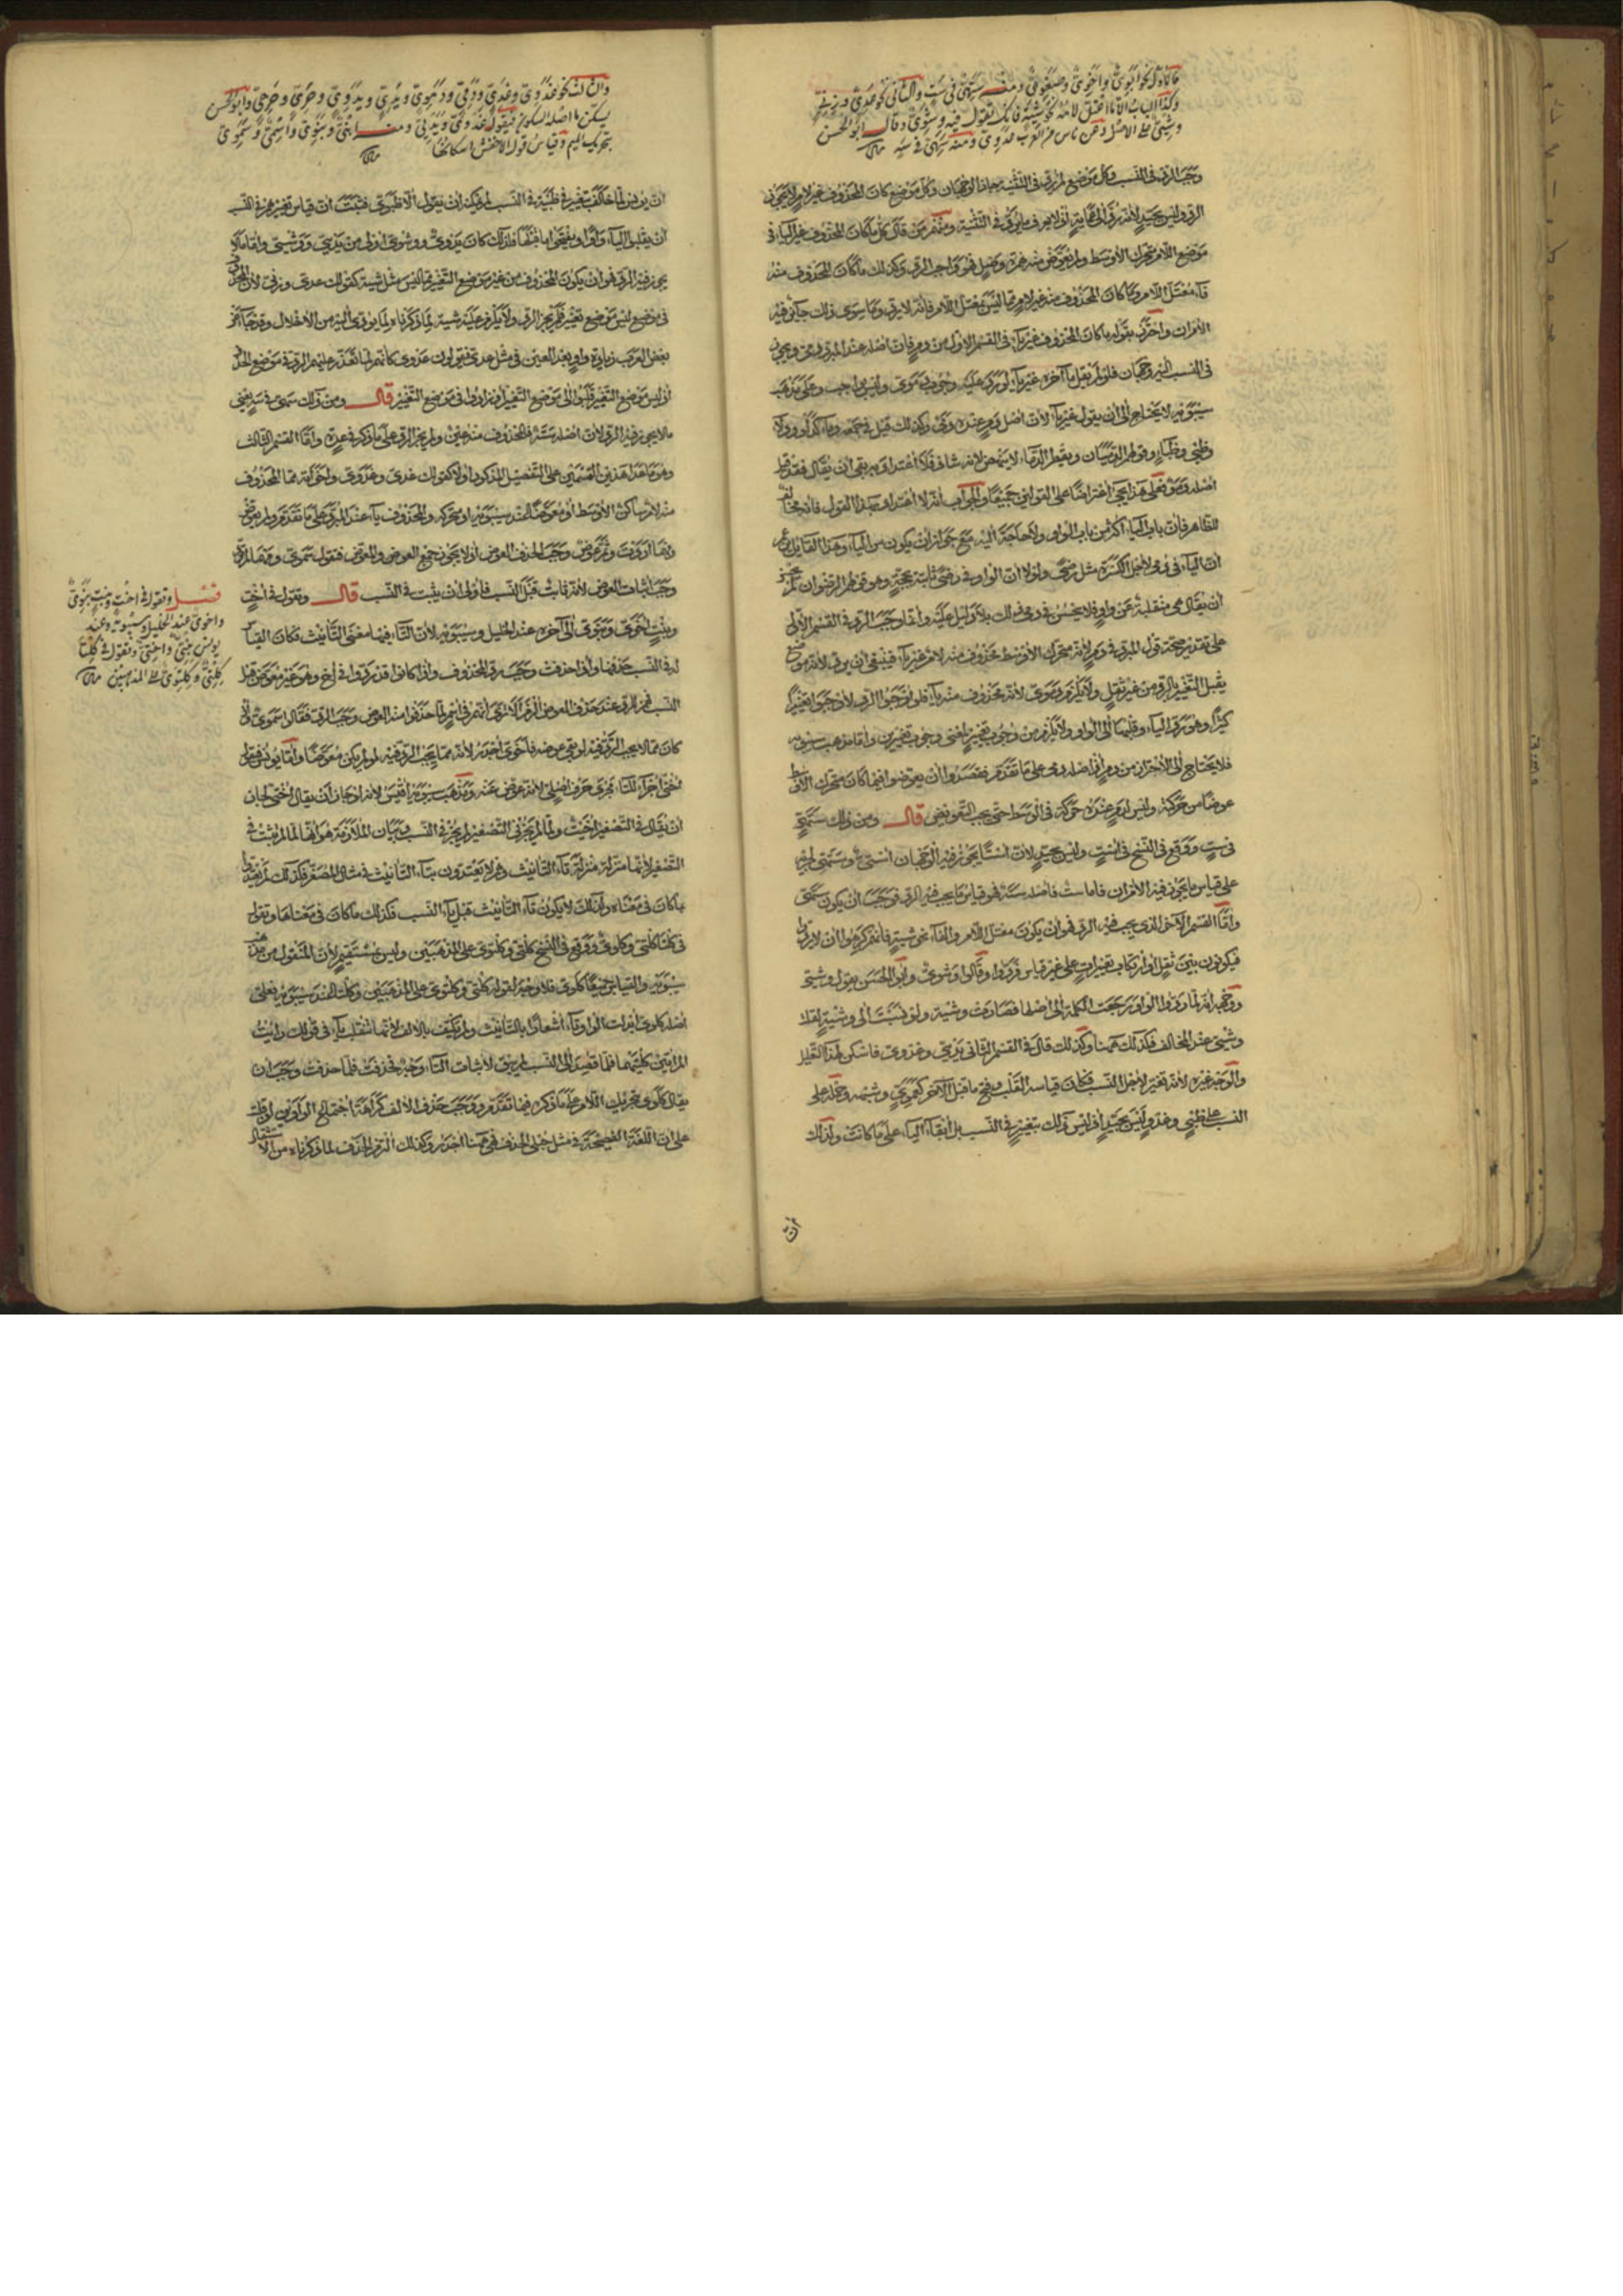 فالأول نحو أبوي وأخوي وضعوي ومنه ستهي في ست والثاني نحو عدي وزني
وكذا الباب إلا ما اعتل لامه نحو شية فإنك تقول فيه وشوي وقال أبو الحسن
وشيي على الأصل وعن ناس من العرب عدوي ومنه سهي في سه
وجب الرد في النسب وكل موضع لم يرد في التثنية جاز الوجهان وكل موضع كان المحذوف غير لام لا يجوز
الرد وليس بجيد لأنه رد إلى عماية إذ لا يعرف ما يرد في التثنية ومنهم من قال كل ما كان المحذوف غير الياء في
موضع اللام متحرك الأوسط ولم يعوض منه همزة وصل فهو واجب الرد وكذلك ما كان المحذوف منه
فاء معتل اللام وما كان المحذوف منه غير لام مما ليس بمعتل اللام فإنه لا يرد وما سوى ذلك جائز فيه
الأمران واحترز بقوله ما كان المحذوف غير ياء في القسم الأول من دم فإن أصله عند المبرد دمي ويجوز
في النسب إليه وجهان فلو لم يقل ما آخره غير ياء لورد عليه وجوب دموي وليس بواجب وعلى مذهب
سيبويه لا يحتاج إلى أن يقول غير ياء لأن أصل دم عنده دمي وكذلك قيل في جمعه دماء كدلو ودلاء
وظبي وظباء وقولهم الدميان ويقطر الدما لا ينهض لأنه شاذ فلا اعتداد به بقي أن يقال فقد قيل
أصله دمو فعلى هذا يجيء اعتراضا على القولين جميعا والجواب أنه لا اعتداد بهذا القول فإنه مخالف
للظاهر فإن باب الياء أكثر من باب الواو ولا حاجة إليه مع جواز أن يكون من الياء وهذا القائل زعم
أن الياء في دمي لأجل الكسرة مثل رضي ولولا أن الواو في رضي ثابتة بحجة وهو قولهم الرضوان لم يجز
أن يقال هي منقلبة عن واو فلا يحسن في دمي ذلك بلا دليل عليه وإنما وجب الرد في القسم الأول
على تقدير صحة قول المبرد في دم لأنه متحرك الأوسط محذوف منه لام غير ياء فينبغي أن يرد لأنه موضع
يقبل التغيير بالرد من غير ثقل ولا يلزم دموي لأنه محذوف منه ياء فلو أوجبوا الرد لأوجبوا تغييرا
كثيرا وهو رد الياء وقلبها إلى الواو ولا يلزم من وجوب تغيير واحد وجوب تغييرين وأما مذهب سيبويه
فلا يحتاج إلى الاحتراز من دم إذ أصله دمي على ما تقدم فقصدوا أن يعوضوا فيما كان متحرك الأوسط
عوضا من حركة وليس لدم عنده حركة في الوسط حتى يجب التعويض قال ومن ذلك ستهي
في ست ووقع في النسخ في است وليس بجيد لأن استا يجوز فيه الوجهان استي وستهي لجريه
على قياس ما يجوز فيه الأمران فأما ست فأصله سته فهو قياس ما يجب فيه الرد فوجب أن يكون ستهي
وأما القسم الآخر الذي يجب فيه الرد فهو أن يكون معتل اللام والفاء نحو شية فإنهم كرهوا أن لا يردوا
فيكونون بين ثقل أو ارتكاب تغييرات على غير قياس فردوا وقالوا وشوي وأبو الحسن يقول وشيي
ووجهه أنه لما ردوا الواو رجعت الكلمة إلى أصلها فصارت وشية ولو نسبت إلى وشية لقلت
وشيي عند المخالف فكذلك ههنا وكذلك قال في القسم الثاني يدي وغدوي فأسكن لهذا التعليل
والوجه غيره لأنه تغير لأجل النسب فكان قياسه القلب وفتح ما قبل الآخر كعموي وشبهه وحمله على
النسب على ظبي وغدو ليس بجيد إذ ليس ذلك بتغيير في النسب بل إبقاء الياء على ما كانت ولذلك
أن
والثالث نحو غدوي وغدي ودمي ودموي ويدي ويدوي وحري وحرحي وأبو الحسن
يسكن ما أصله السكون فيقول غدوي ويديي ومنه ابني وبنوي واسمي وسموي
بتحريك الميم وقياس قول الأخفش إسكانها
أن يونس لما خالف بتغيير في ظبية في النسب لم يمكنه أن يقول إلا ظبوي فثبت أن قياس تغييرهم في النسب
أن يقلب الياء واوا ويفتحوا ما قبلها فلذلك كان يدوي ووشوي أولى من يديي ووشيي وأما ما لا
يجوز فيه الرد فهو أن يكون المحذوف من غير موضع التغيير مما ليس مثل شية كقولك عدي وزني لأن المحذوف
في موضع ليس موضع تغيير فلم يجز الرد ولا يلزم عليه شية لما ذكرناه ولما يؤدي إليه من الإخلال وقد جاء عن
بعض العرب زيادة واو بعد العين في مثل عدي فيقولون عدوي كأنهم لما تعذر عليهم الرد في موضع الحذف
إذ ليس موضع التغيير قلبوا إلى موضع التغيير فزادوا في موضع التغيير قال ومن ذلك سهي في سه يعني
مما لا يجوز فيه الرد لأن أصله سته فالمحذوف منه عين ولم يجز الرد على ما ذكر في عدة وأما القسم الثالث
وهو ما عدا هذين القسمين على التفصيل المذكور أولا كقولك غدي وغدوي وأخواته مما المحذوف
منه لام ساكن الأوسط أو معوضا عند سيبويه أو متحركه والمحذوف ياء عند المبرد على ما تقدم ولم يعوض
ومهما رددت وثم عوض وجب الحذف العوض إذ لا يجوز جمع العوض والمعوض فتقول سموي ومهما لم ترد
وجب إثبات العوض لأنه ثابت قبل النسب فأولى أن يثبت في النسب قال وتقول في أخت
وبنت أخوي وبنوي إلى آخره عند الخليل وسيبويه لأن التاء فيهما معنى التأنيث فكان القياس
له في النسب حذفها وإذا حذفت وجب رد المحذوف وإذا كانوا قد ردوا في أخ وهو غير معوض قبل
النسب فهو للرد عند حذف العوض ألزم ألا ترى أنهم في اسم لما حذفوا منه العوض وجب الرد فقالوا سموي وإن
كان مما لا يجب الرد فيه لو بقي عوضه فأخوي أجدر لأنه مما يجب الرد فيه لو لم يكن معوضا وأما يونس فيقول
أختي إجراء للتاء مجرى حرف أصلي لأنه عوض عنه ومذهب سيبويه أقيس لأنه لو جاز أن يقال أختي لجاز
أن يقال في التصغير أخيت ولما لم يجز في التصغير لم يجز في النسب وبيان الملازمة هو أنها لما لم يثبت في
التصغير لأنها منزلة منزلة تاء التأنيث وهم لا يعتدون بتاء التأنيث في مثال المصغر فكذلك لم يعتدوا
بما كان في معناه وكذلك لا يكون تاء التأنيث قبل ياء النسب فكذلك ما كان في معناها وتقول
في كلتا كلتي وكلتوي ووقع في النسخ كلتي وكلتوي على المذهبين وليس بمستقيم لأن المنقول من مذهب
سيبويه والقياس جميعا كلوي فلا وجه لقوله كلتي وكلتوي على المذهبين وكلتا عند سيبويه فعلى
أصله كلوى أبدلت الواو تاء إشعارا بالتأنيث ولم يكتف بالألف لأنها تنقلب ياء في قولك رأيت
المرأتين كلتيهما فلما قصد إلى النسب لم يبق لإثبات التاء وجه فحذفت فلما حذفت وجب أن
يقال كلوي بتحريك اللام على ما ذكره فيما تقدم ووجب حذف الألف كراهة اجتماع الواوين لو قلبت
على أن اللغة الفصيحة في مثل حبلى الحذف فهي ههنا أجدر وكذلك ألزم الحذف لما ذكرناه من الاستثقال
فصل وتقول في أخت وبنت بنوي
وأخوي عند الخليل وسيبويه وعند
يونس بنتي وأختي وتقول في كلتا
كلتي وكلتوي على المذهبين